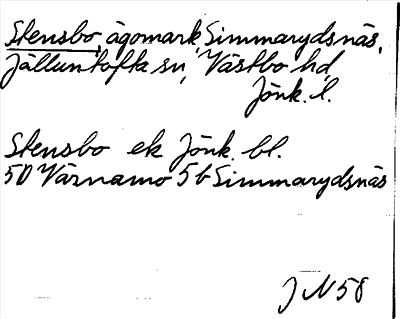 Stensbo, ägomark, Simmarydsnäs,
Jälluntofta sn, Västbo hd,
Jönk. l.
Stensbo ek Jönk. bl.
5D Värnamo 5b Simmarydsnäs
J N 58